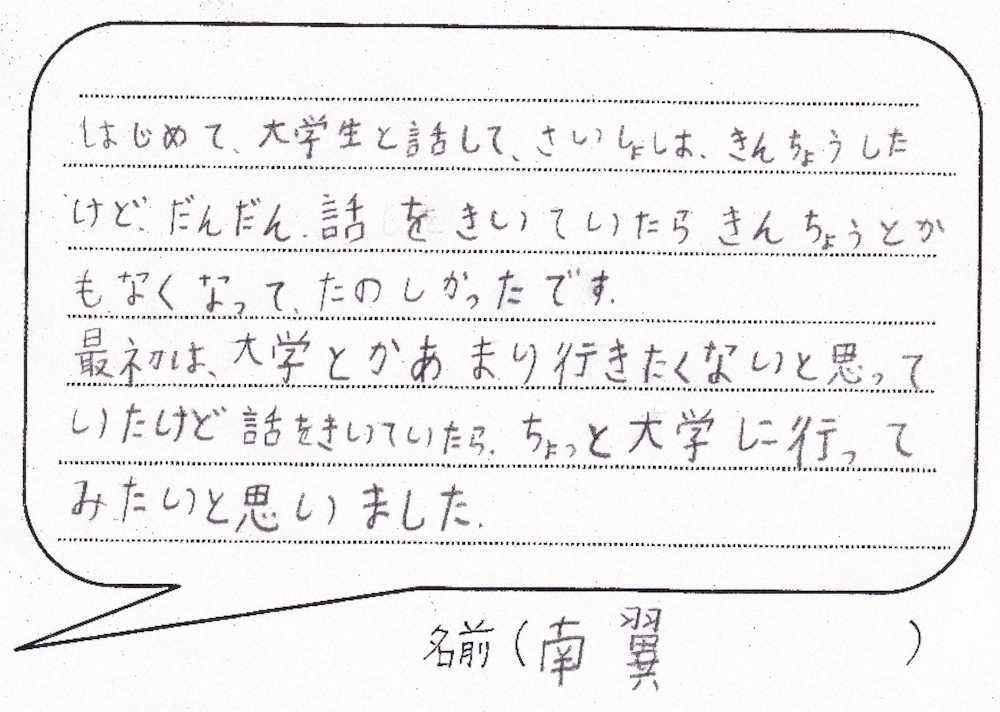 はじめて、大学生と話して、さいしょは、きんちょうした
けど、だんだん、話をきいていたらきんちょうとか
もなくなって、たのしかったです。
最初は、大学とかあまり行きたくないと思って
いたけど話をきいていたら、ちょっと大学に行って
みたいと思いました。
名前(南 翼 )